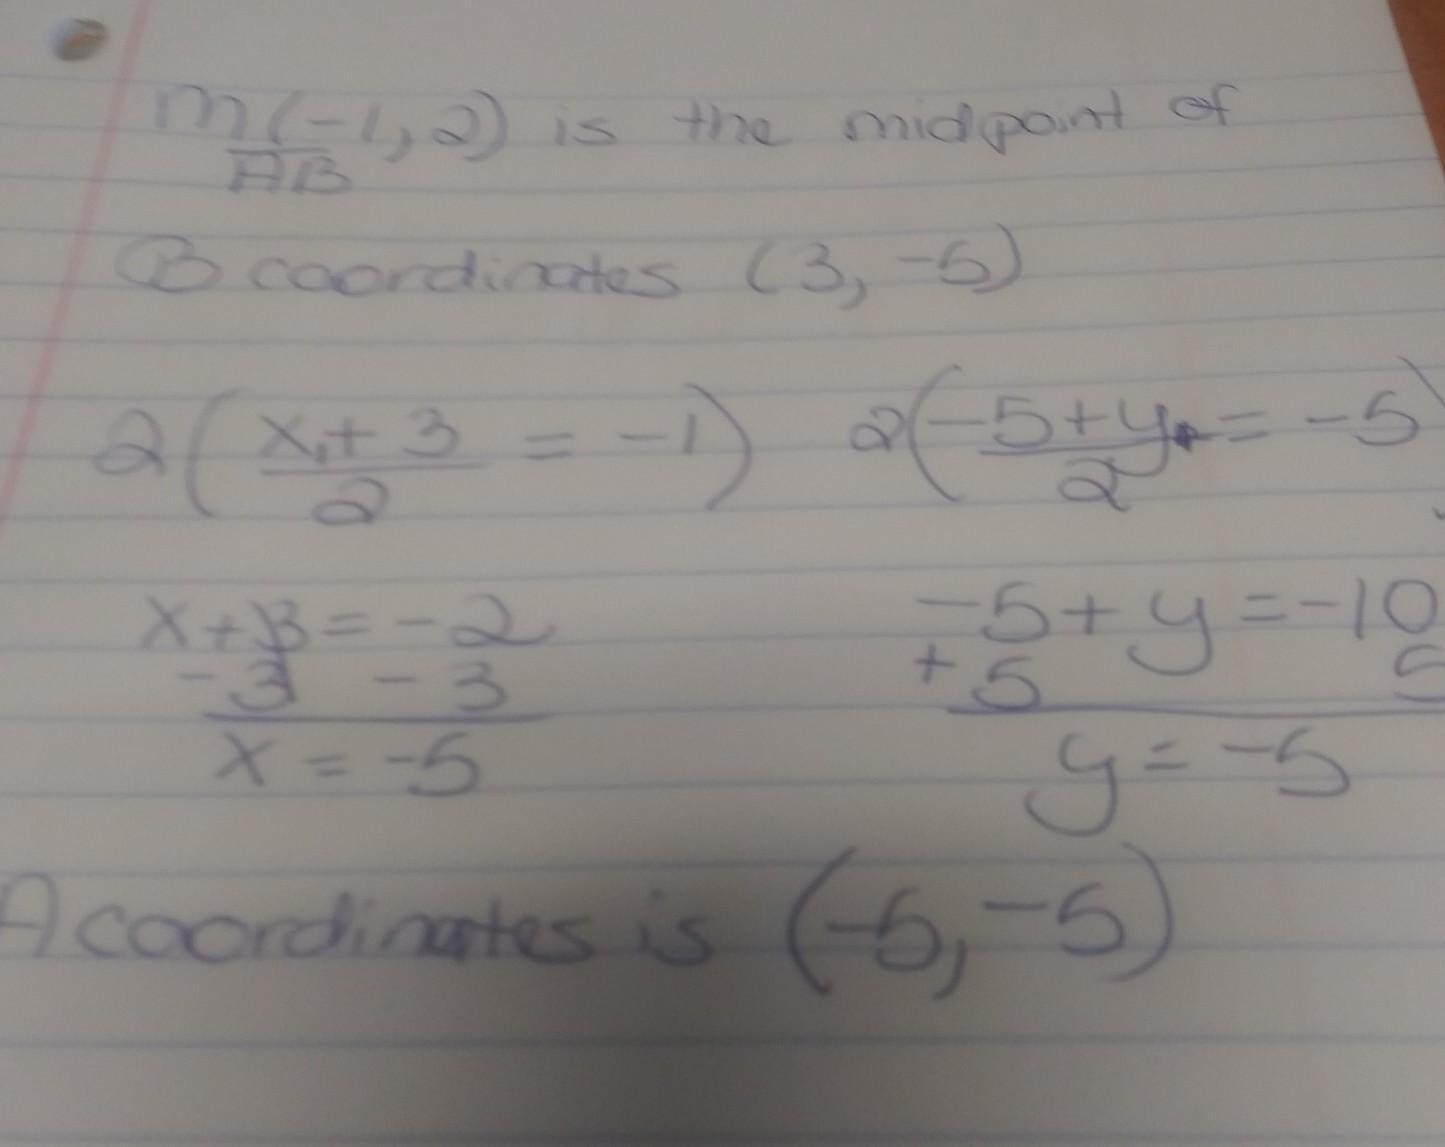 m(-1,2) is the midpoint of
AB
B coordinates (3, -5)
2(x₁+3/2 = -1) 2(-5+y/2 = -5)
x+3=-2 -5+y=-10
-3 -3 +5 5
x = -5 y = -5
A coordinates is (-5,-5)